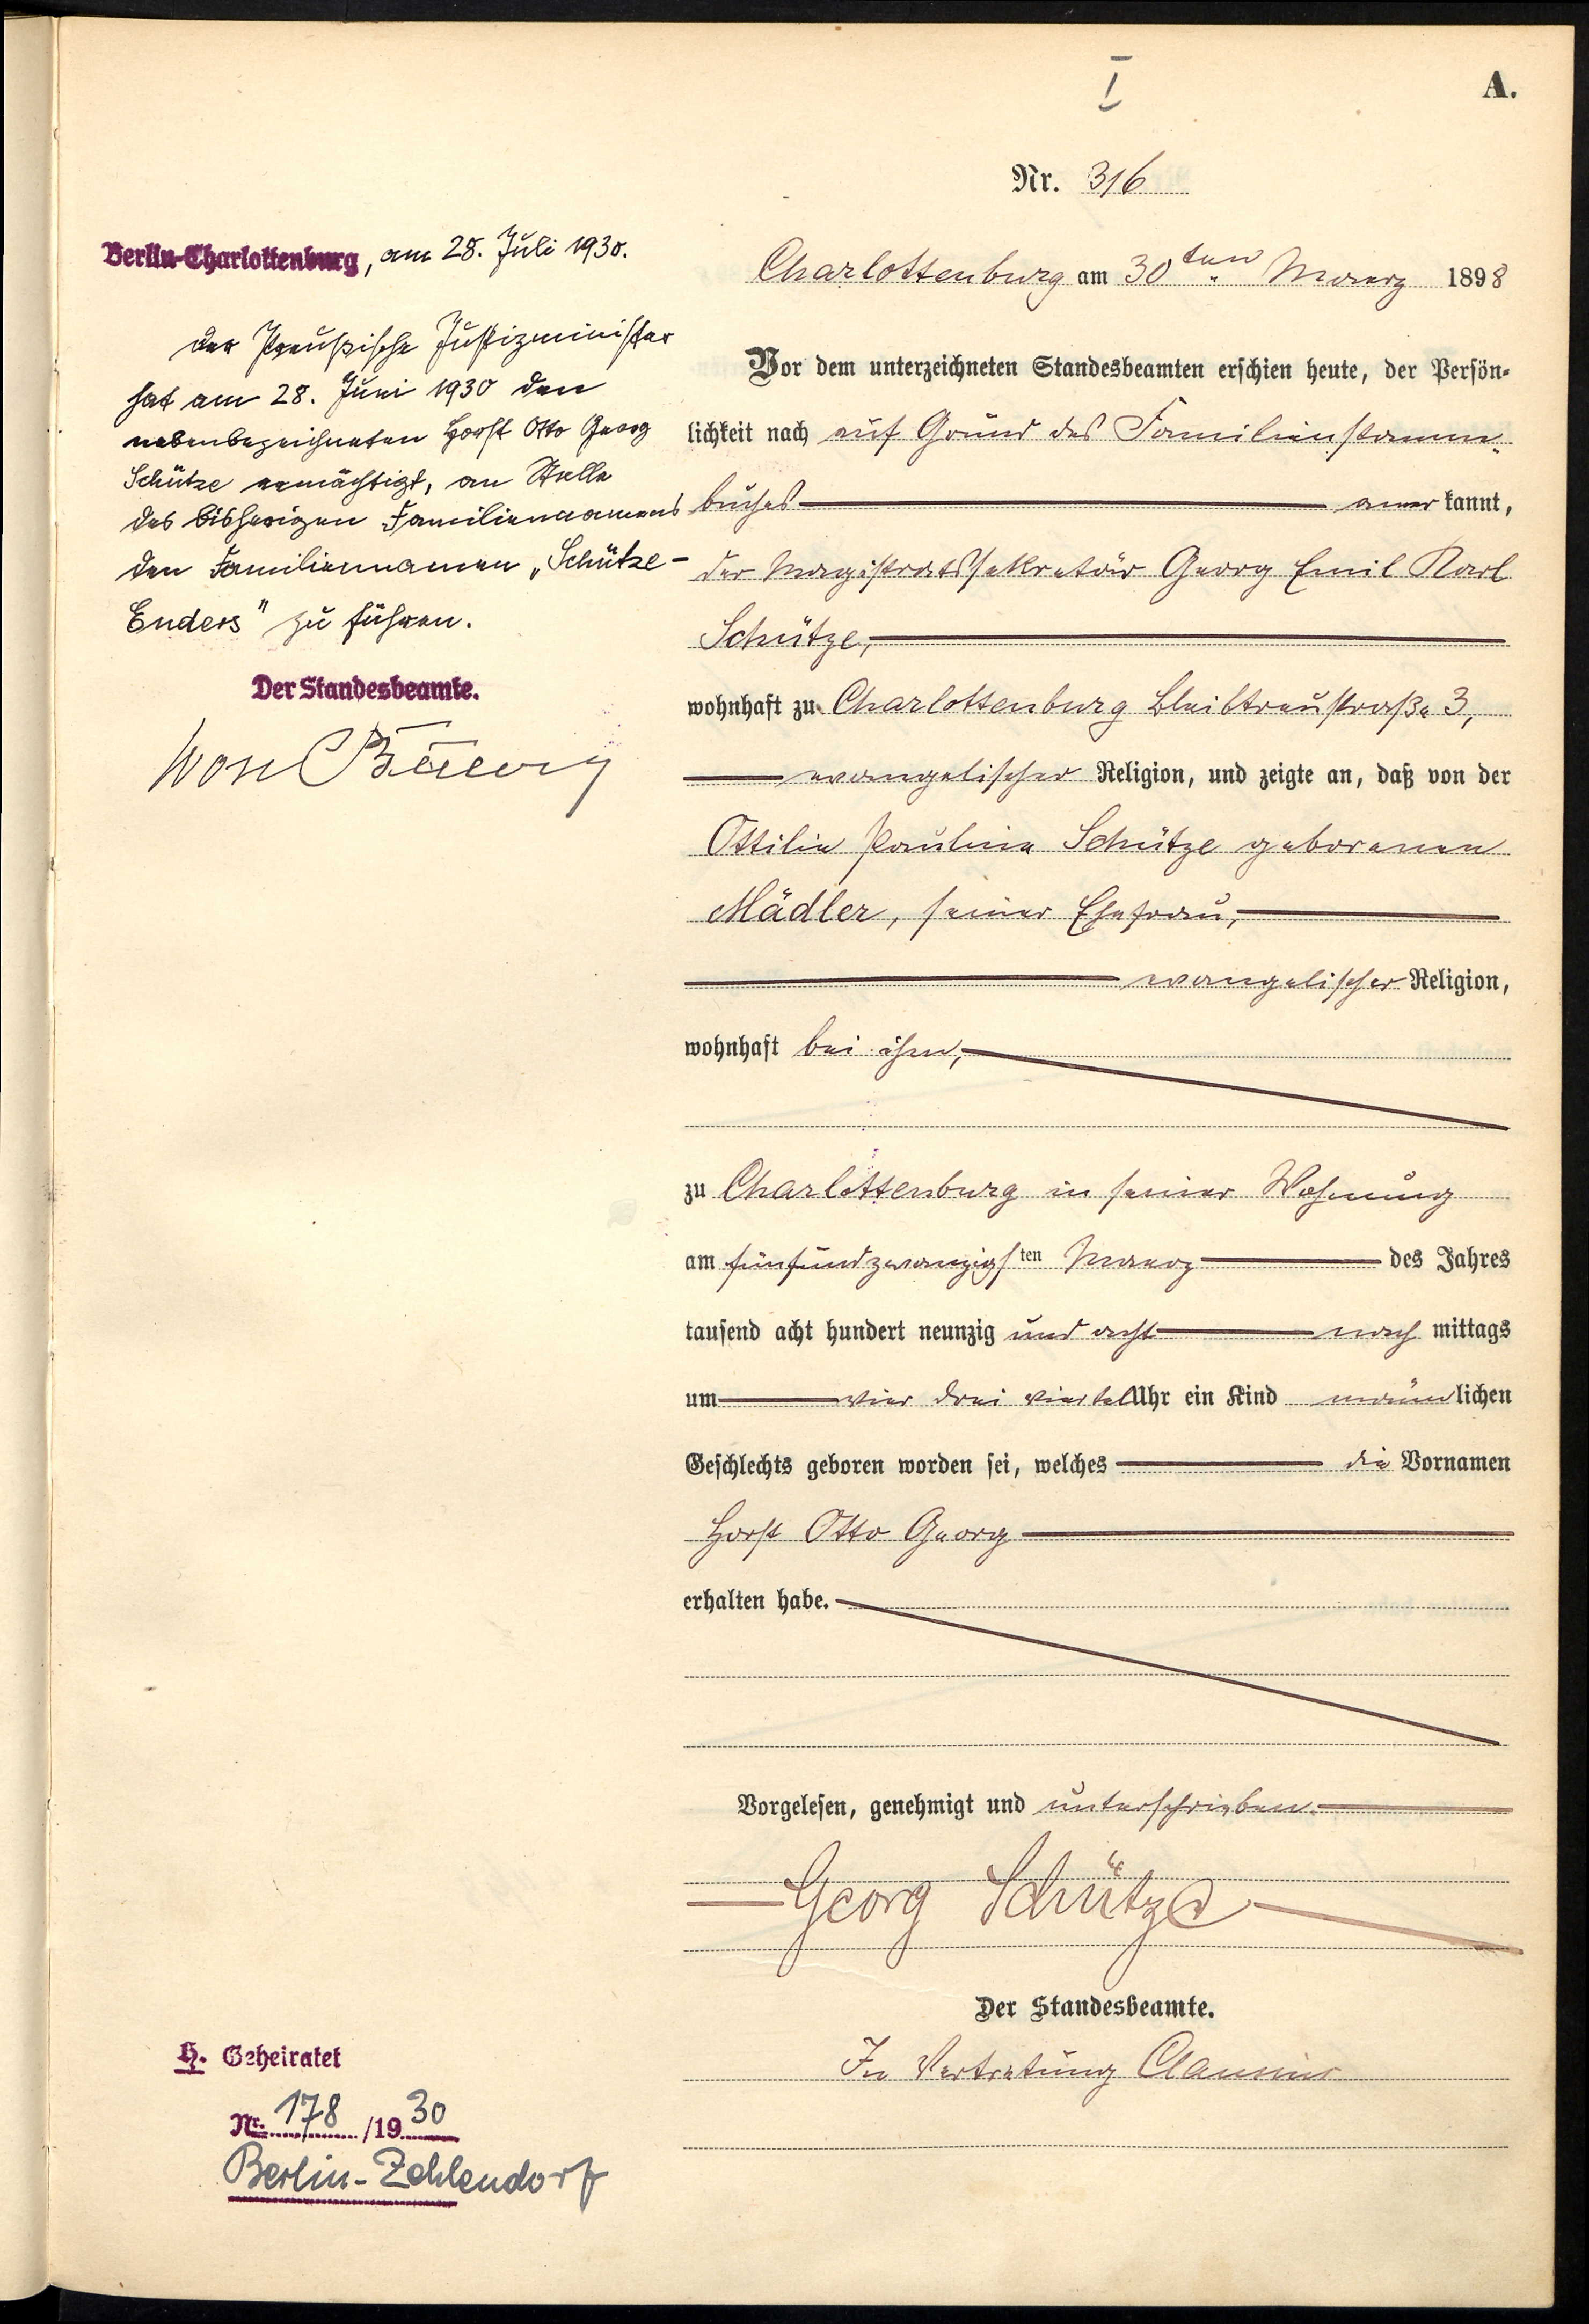 I
A.
Nr. 316
Charlottenburg am 30ten Maerz 1898
Vor dem unterzeichneten Standesbeamten erschien heute, der Persön-
lichkeit nach auf Grund des Familienstamm-
buches anerkannt,
der Magistratssekretär Georg Emil Karl
Schütze,
wohnhaft zu Charlottenburg Bleibtreustraße 3,
evangelischer Religion, und zeigte an, daß von der
Ottilie Pauline Schütze geborenen
Mädler, seiner Ehefrau,
evangelischer Religion,
wohnhaft bei ihm,
zu Charlottenburg in seiner Wohnung
am fünfundzwanzigsten Maerz des Jahres
tausend acht hundert neunzig und acht nachmittags
um vier drei viertel Uhr ein Kind männlichen
Geschlechts geboren worden sei, welches die Vornamen
Horst Otto Georg
erhalten habe.
Vorgelesen, genehmigt und unterschrieben.
Georg Schütze
Der Standesbeamte.
In Vertretung
Berlin-Charlottenburg, am 28. Juli 1930.
Der Preußische Justizminister
hat am 28. Juni 1930 den
nebenbezeichneten Horst Otto Georg
Schütze ermächtigt, an Stelle
des bisherigen Familiennamens
den Familiennamen „Schütze-
Enders" zu führen.
Der Standesbeamte.
H. Geheiratet
Nr. 178/1930
Berlin-Zehlendorf